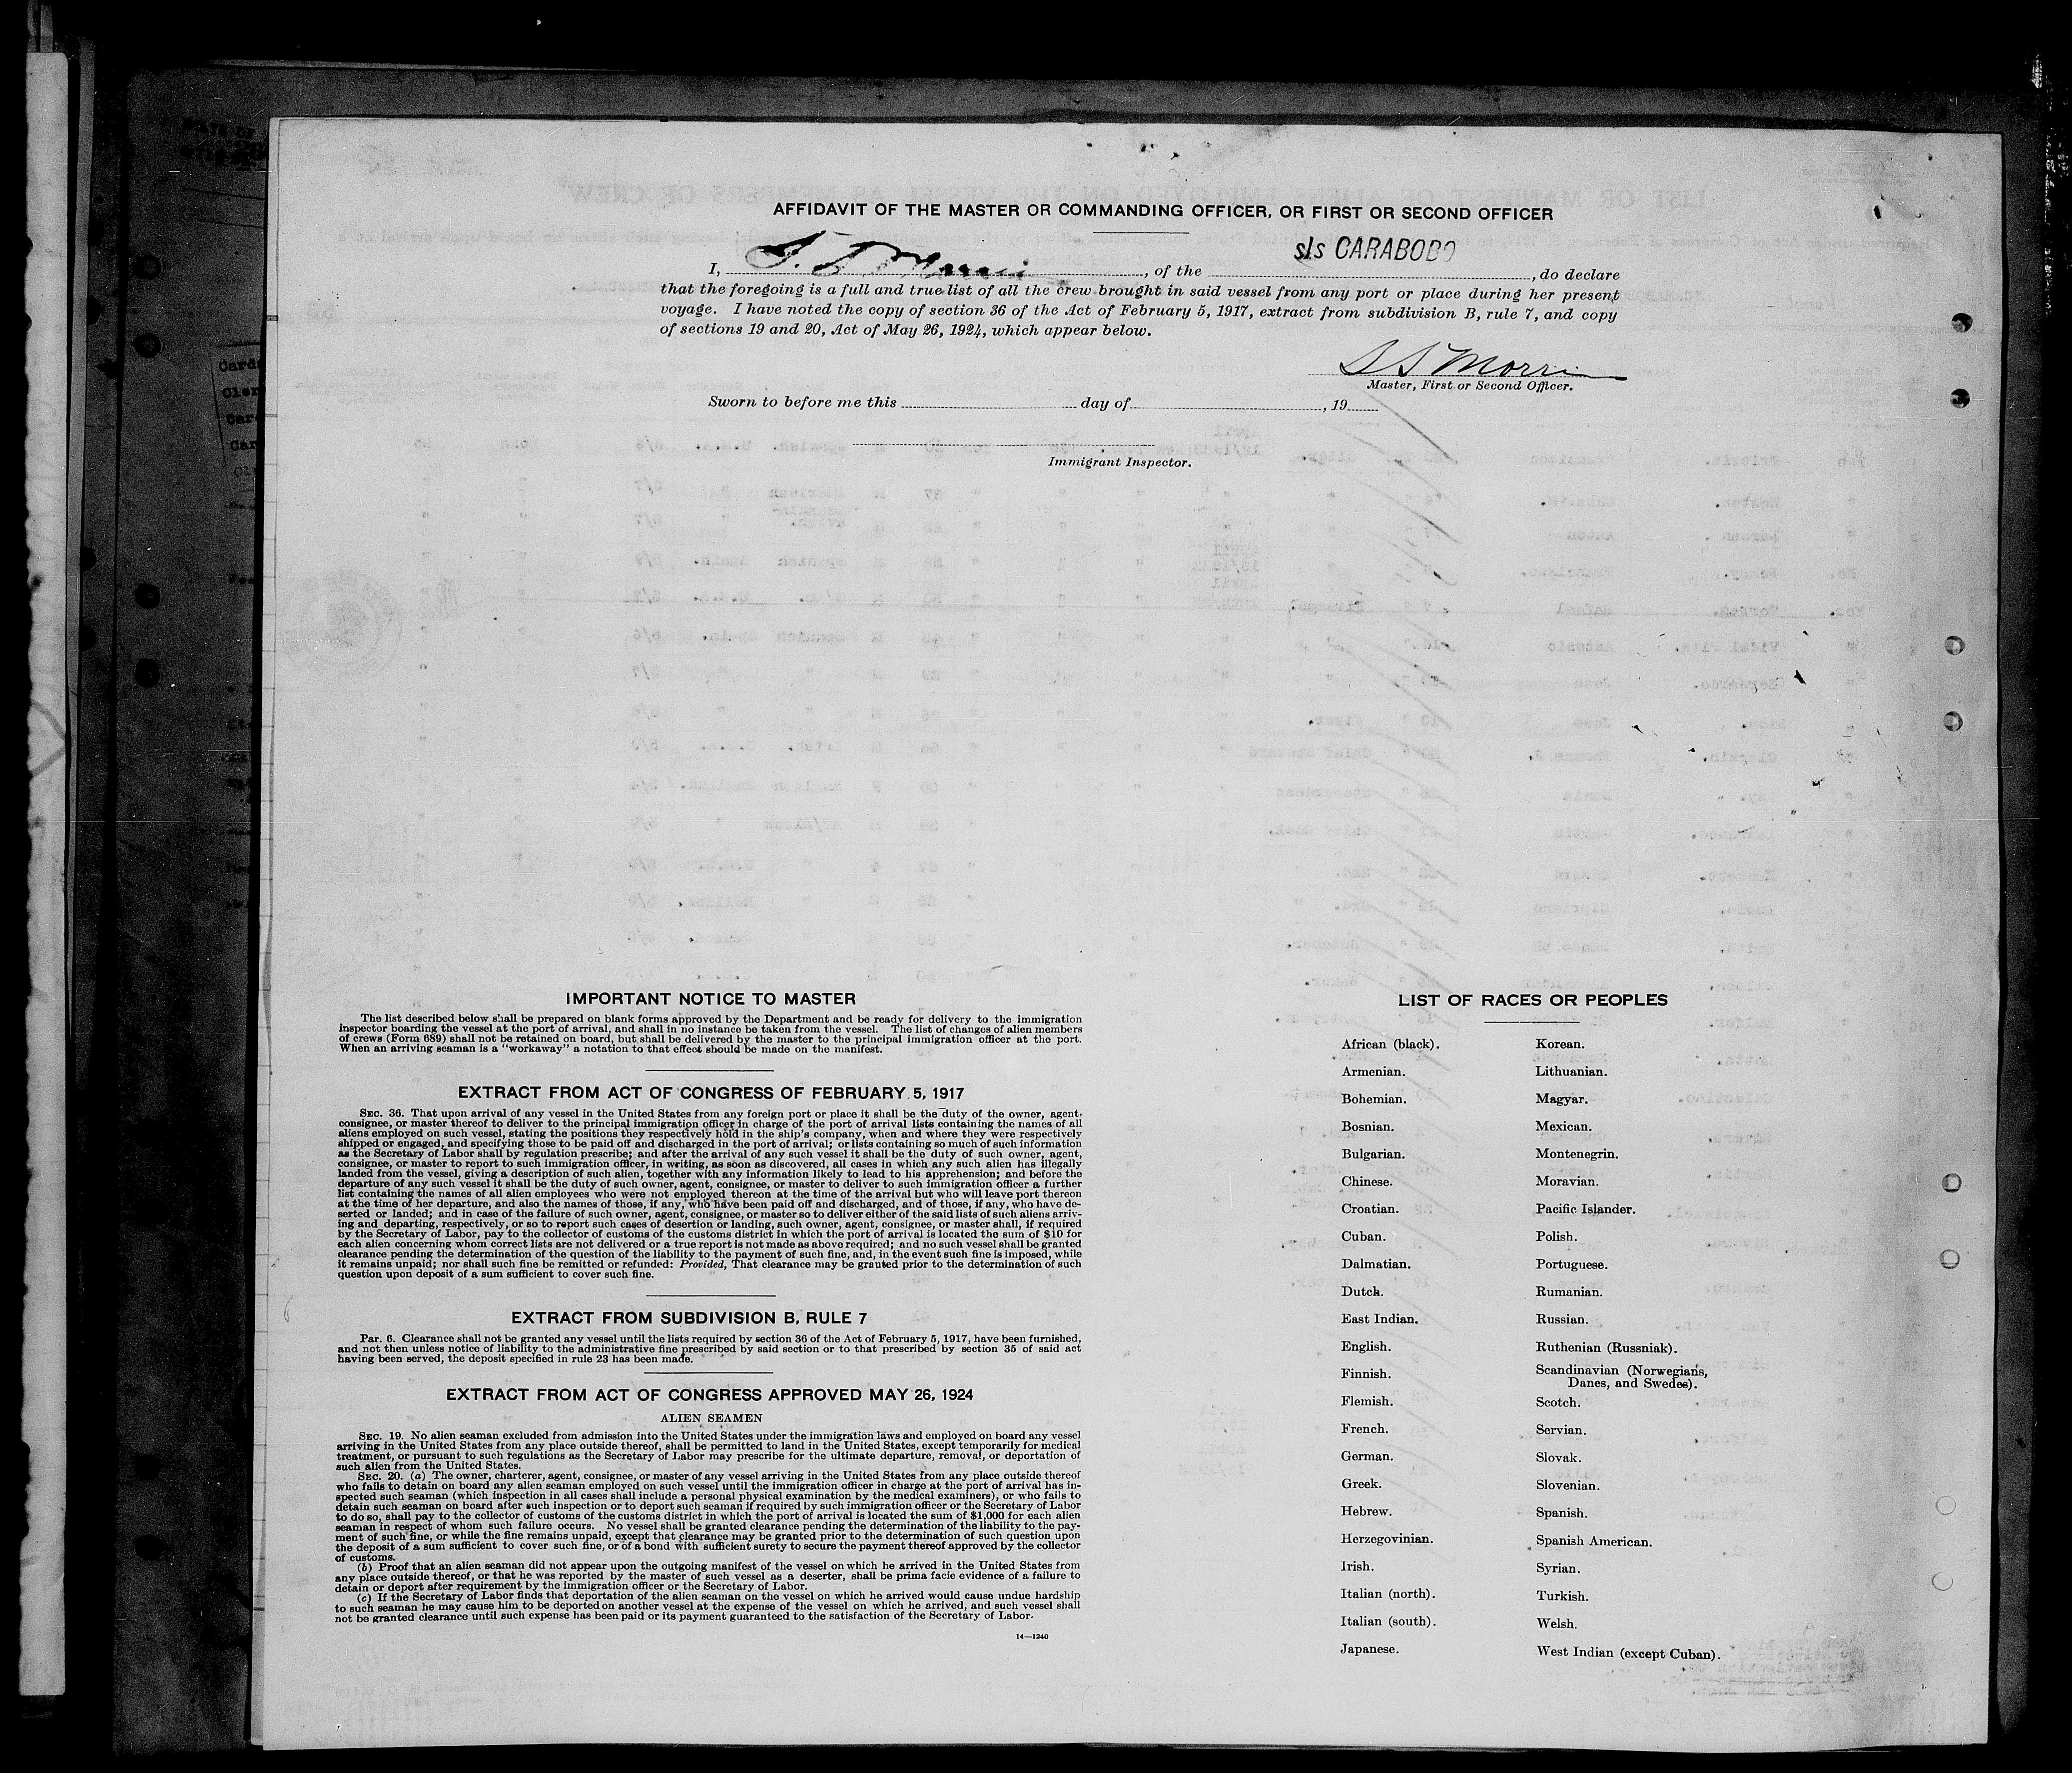 AFFIDAVIT OF THE MASTER OR COMMANDING OFFICER, OR FIRST OR SECOND OFFICER
I, Morris, of the S/S CARABOBO, do declare
that the foregoing is a full and true list of all the crew brought in said vessel from any port or place during her present
voyage. I have noted the copy of section 36 of the Act of February 5, 1917, extract from subdivision B, rule 7, and copy
of sections 19 and 20, Act of May 26, 1924, which appear below.
Morris
Master, First or Second Officer.
Sworn to before me this day of , 19
Immigrant Inspector.
IMPORTANT NOTICE TO MASTER
The list described below shall be prepared on blank forms approved by the Department and be ready for delivery to the immigration
inspector boarding the vessel at the port of arrival, and shall in no instance be taken from the vessel. The list of changes of alien members
of crews (Form 689) shall not be retained on board, but shall be delivered by the master to the principal immigration officer at the port.
When an arriving seaman is a "workaway" a notation to that effect should be made on the manifest.
EXTRACT FROM ACT OF CONGRESS OF FEBRUARY 5, 1917
SEC. 36. That upon arrival of any vessel in the United States from any foreign port or place it shall be the duty of the owner, agent,
consignee, or master thereof to deliver to the principal immigration officer in charge of the port of arrival lists containing the names of all
aliens employed on such vessel, stating the positions they respectively hold in the ship's company, when and where they were respectively
shipped or engaged, and specifying those to be paid off and discharged in the port of arrival; or lists containing so much of such information
as the Secretary of Labor shall by regulation prescribe; and after the arrival of any such vessel it shall be the duty of such owner, agent,
consignee, or master to report to such immigration officer, in writing, as soon as discovered, all cases in which any such alien has illegally
landed from the vessel, giving a description of such alien, together with any information likely to lead to his apprehension; and before the
departure of any such vessel it shall be the duty of such owner, agent, consignee, or master to deliver to such immigration officer a further
list containing the names of all alien employees who were not employed thereon at the time of the arrival but who will leave port thereon
at the time of her departure, and also the names of those, if any, who have been paid off and discharged, and of those, if any, who have de-
serted or landed; and in case of the failure of such owner, agent, consignee, or master so to deliver either of the said lists of such aliens arriv-
ing and departing, respectively, or so to report such cases of desertion or landing, such owner, agent, consignee, or master shall, if required
by the Secretary of Labor, pay to the collector of customs of the customs district in which the port of arrival is located the sum of $10 for
each alien concerning whom correct lists are not delivered or a true report is not made as above required; and no such vessel shall be granted
clearance pending the determination of the question of the liability to the payment of such fine, and, in the event such fine is imposed, while
it remains unpaid; nor shall such fine be remitted or refunded: Provided, That clearance may be granted prior to the determination of such
question upon deposit of a sum sufficient to cover such fine.
EXTRACT FROM SUBDIVISION B, RULE 7
Par. 6. Clearance shall not be granted any vessel until the lists required by section 36 of the Act of February 5, 1917, have been furnished,
and not then unless notice of liability to the administrative fine prescribed by said section or to that prescribed by section 35 of said act
having been served, the deposit specified in rule 23 has been made.
EXTRACT FROM ACT OF CONGRESS APPROVED MAY 26, 1924
ALIEN SEAMEN
SEC. 19. No alien seaman excluded from admission into the United States under the immigration laws and employed on board any vessel
arriving in the United States from any place outside thereof, shall be permitted to land in the United States, except temporarily for medical
treatment, or pursuant to such regulations as the Secretary of Labor may prescribe for the ultimate departure, removal, or deportation of
such alien from the United States.
SEC. 20. (a) The owner, charterer, agent, consignee, or master of any vessel arriving in the United States from any place outside thereof
who fails to detain on board any alien seaman employed on such vessel until the immigration officer in charge at the port of arrival has in-
spected such seaman (which inspection in all cases shall include a personal physical examination by the medical examiners), or who fails to
detain such seaman on board after such inspection or to deport such seaman if required by such immigration officer or the Secretary of Labor
to do so, shall pay to the collector of customs of the customs district in which the port of arrival is located the sum of $1,000 for each alien
seaman in respect of whom such failure occurs. No vessel shall be granted clearance pending the determination of the liability to the pay-
ment of such fine, or while the fine remains unpaid, except that clearance may be granted prior to the determination of such question upon
the deposit of a sum sufficient to cover such fine, or of a bond with sufficient surety to secure the payment thereof approved by the collector
of customs.
(b) Proof that an alien seaman did not appear upon the outgoing manifest of the vessel on which he arrived in the United States from
any place outside thereof, or that he was reported by the master of such vessel as a deserter, shall be prima facie evidence of a failure to
detain or deport after requirement by the immigration officer or the Secretary of Labor.
(c) If the Secretary of Labor finds that deportation of the alien seaman on the vessel on which he arrived would cause undue hardship
to such seaman he may cause him to be deported on another vessel at the expense of the vessel on which he arrived, and such vessel shall
not be granted clearance until such expense has been paid or its payment guaranteed to the satisfaction of the Secretary of Labor.
14—1240
LIST OF RACES OR PEOPLES
African (black).
Armenian.
Bohemian.
Bosnian.
Bulgarian.
Chinese.
Croatian.
Cuban.
Dalmatian.
Dutch.
East Indian.
English.
Finnish.
Flemish.
French.
German.
Greek.
Hebrew.
Herzegovinian.
Irish.
Italian (north).
Italian (south).
Japanese.
Korean.
Lithuanian.
Magyar.
Mexican.
Montenegrin.
Moravian.
Pacific Islander.
Polish.
Portuguese.
Rumanian.
Russian.
Ruthenian (Russniak).
Scandinavian (Norwegians,
Danes, and Swedes).
Scotch.
Servian.
Slovak.
Slovenian.
Spanish.
Spanish American.
Syrian.
Turkish.
Welsh.
West Indian (except Cuban).